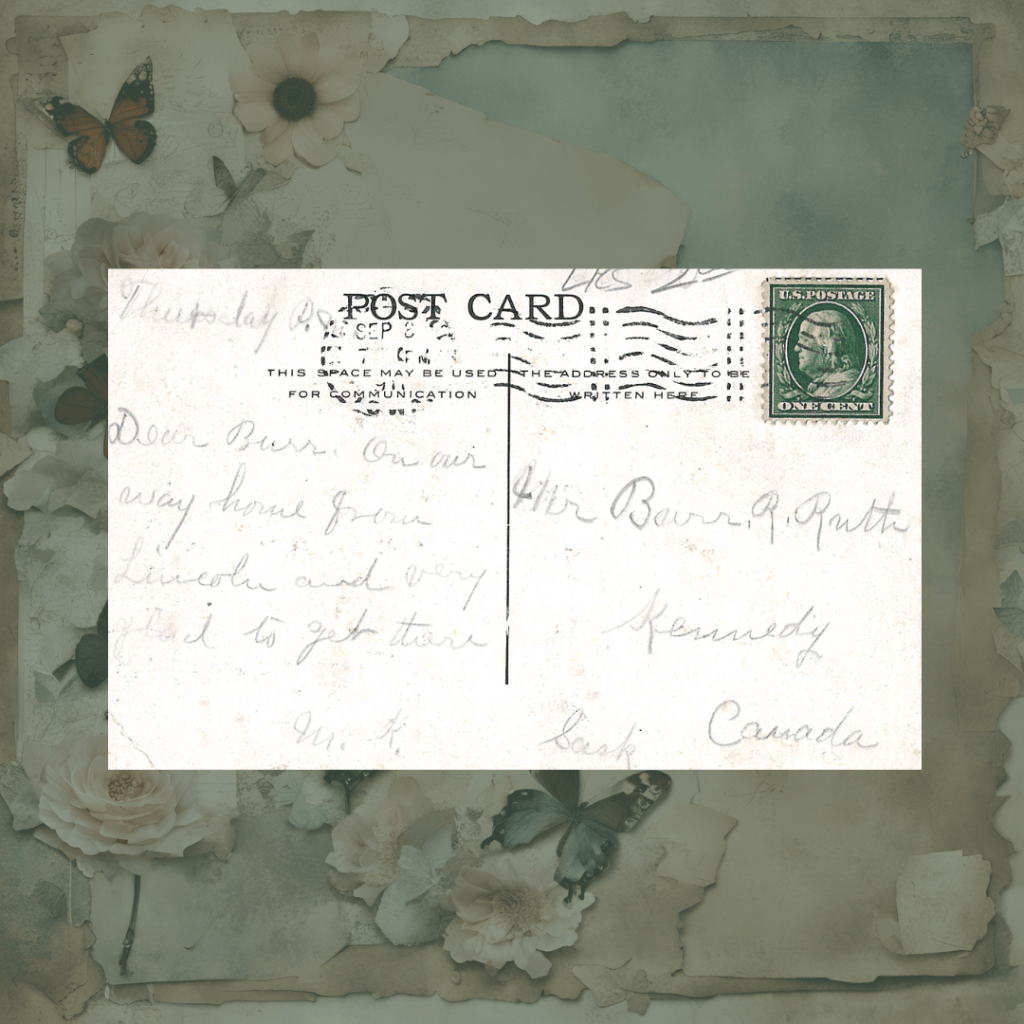 Thursday
POST CARD
SEP 8
7 PM
THIS SPACE MAY BE USED
FOR COMMUNICATION
THE ADDRESS ONLY TO BE
WRITTEN HERE
U.S. POSTAGE
ONE CENT
Dear Burr. On our
way home from
Lincoln and very
glad to get there
M. K.
Mr Burr. R. Ruth
Kennedy
Sask Canada